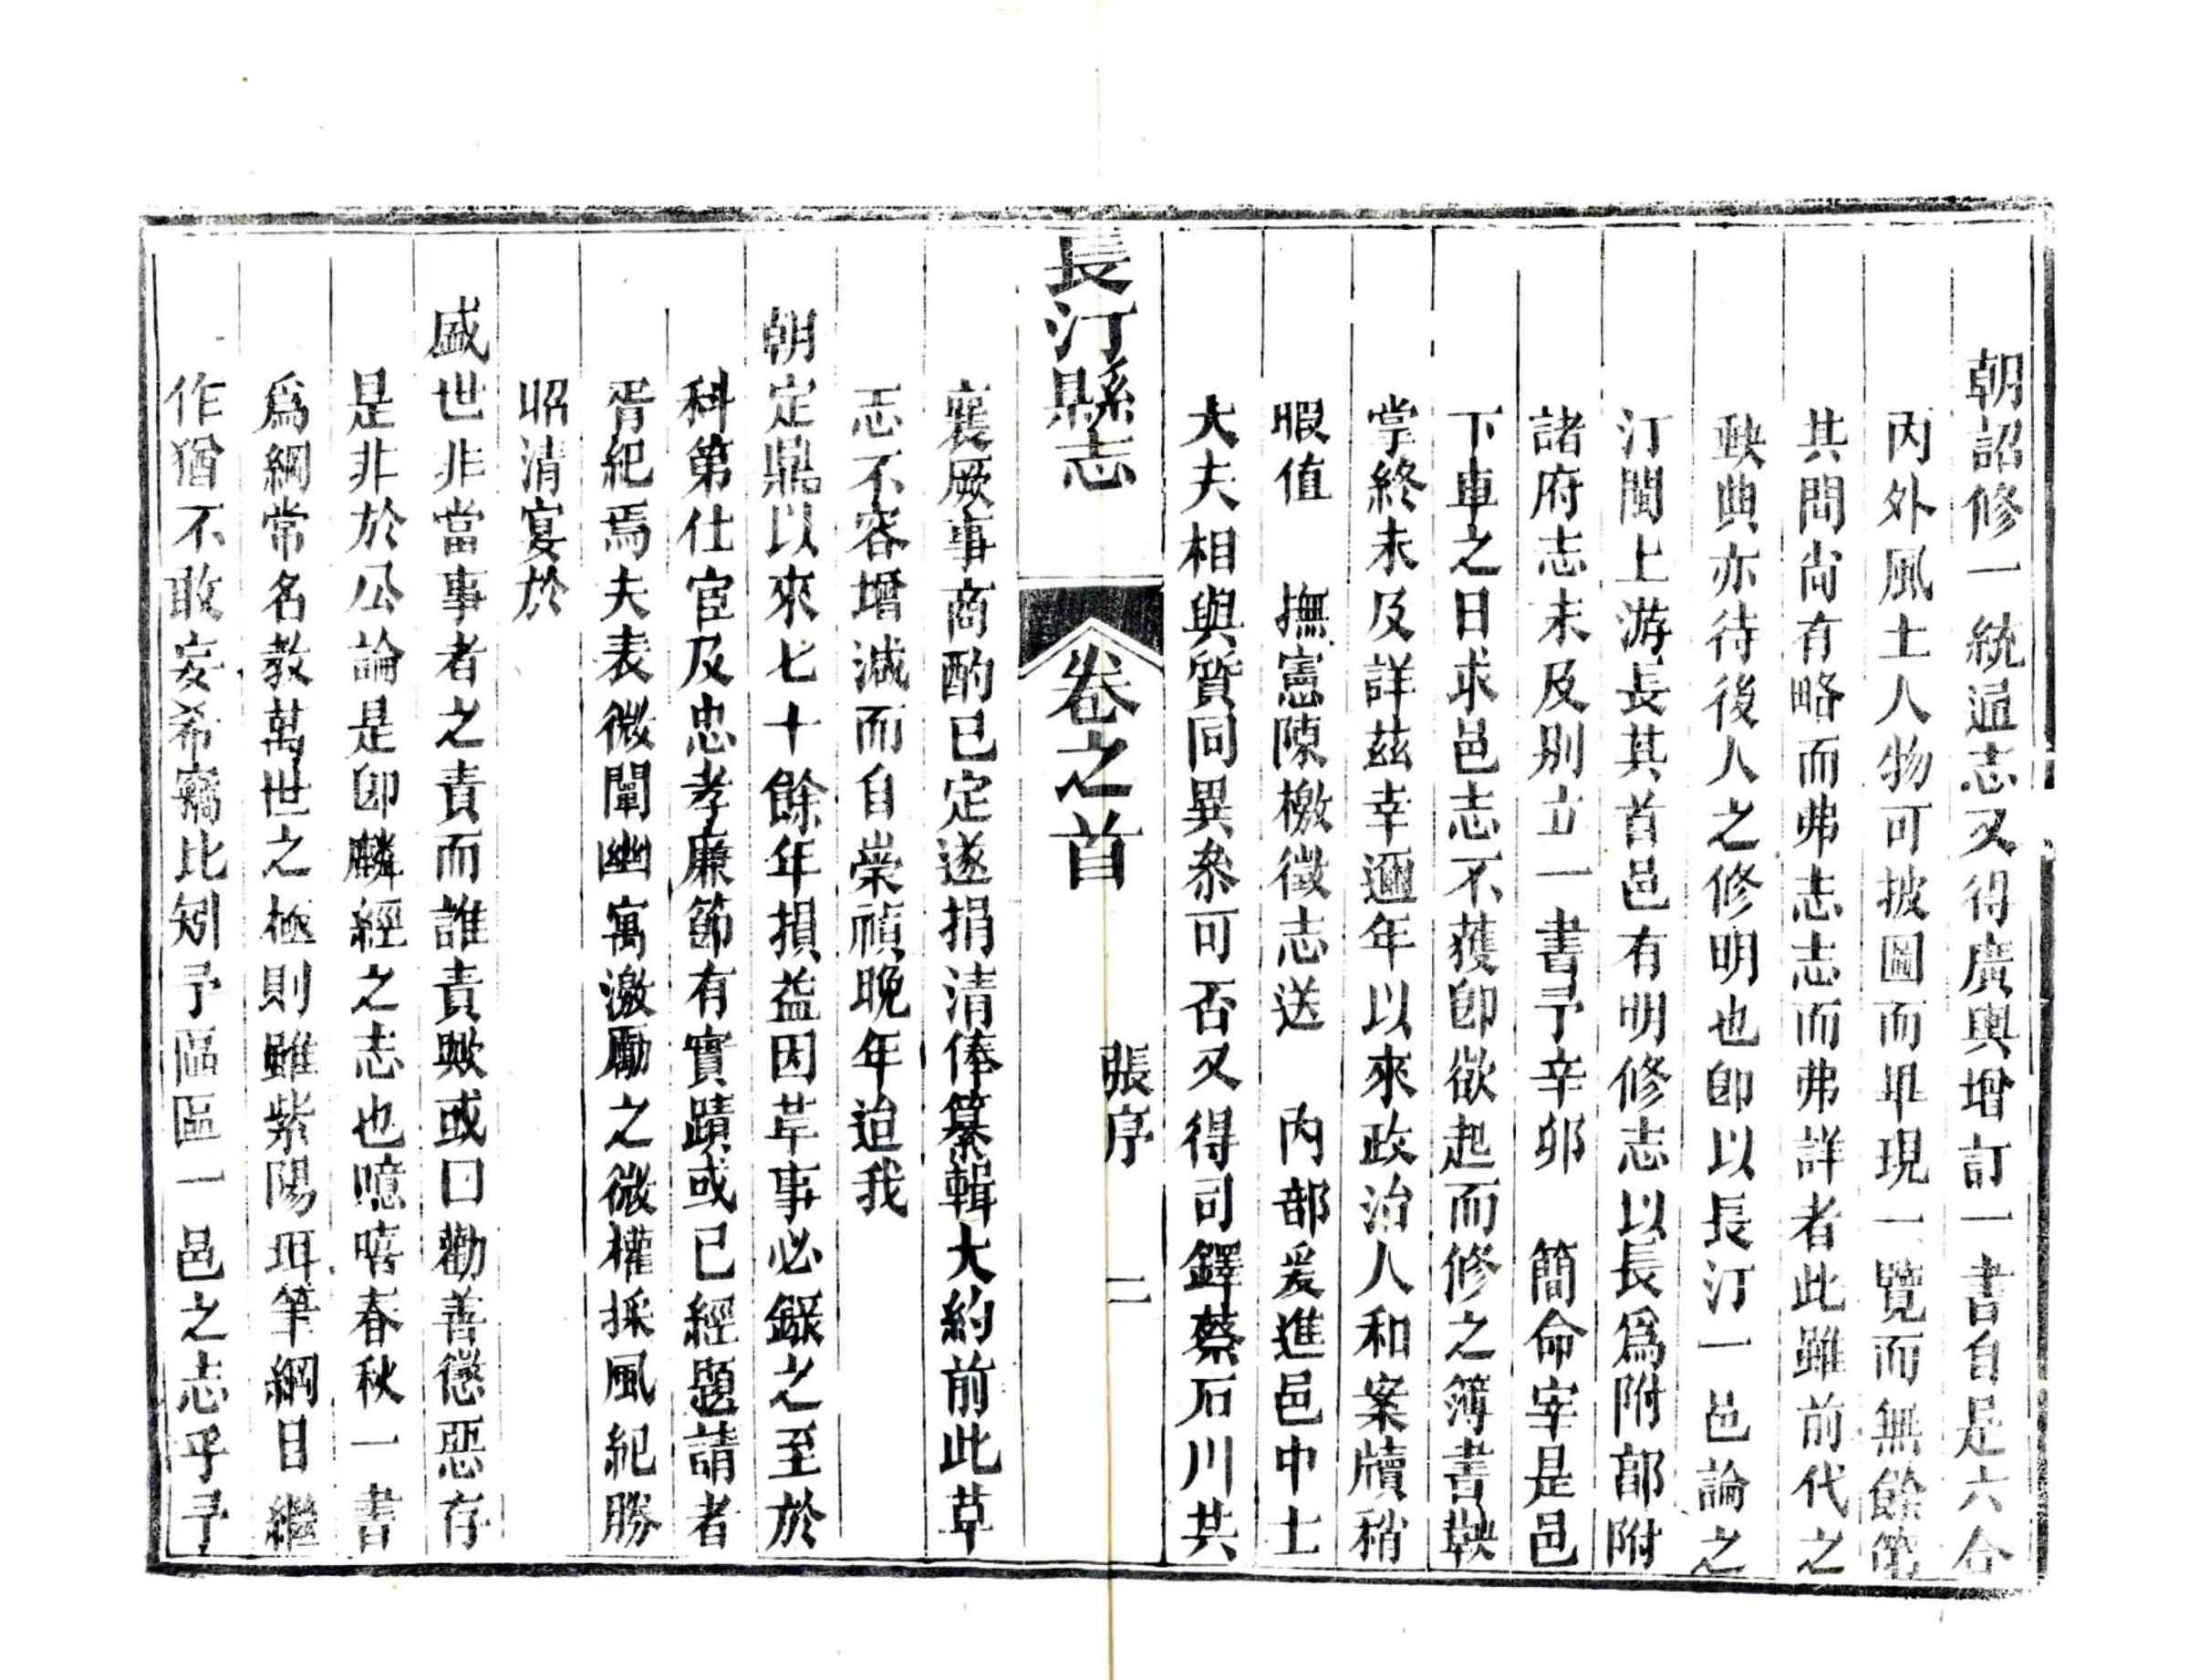 朝詔修一統通志又得廣輿增訂一書自是六合
內外風土人物可披圖而畢現一覽而無餘第
其間尚有略而弗志志而弗詳者此雖前代之
缺典亦待後人之修明也卽以長汀一邑論之
汀閩上游長其首邑有明修志以長爲附郭附
諸府志未及別立一書予辛卯　簡命宰是邑
下車之日求邑志不獲卽欲起而修之簿書鞅
掌終未及詳茲幸邇年以來政治人和案牘稍
暇值　撫憲陳檄徵志送　內部爰進邑中士
大夫相與質同異叅可否又得司鐸蔡石川共
長汀縣志　卷之首　張序　二
襄厥事商酌已定遂捐清俸纂輯大約前此草
志不容增減而自崇禎晚年迨我
朝定鼎以來七十餘年損益因革事必錄之至於
科第仕宦及忠孝廉節有實蹟或已經題請者
胥紀焉夫表微闡幽寓激勵之微權採風紀勝
昭清宴於
盛世非當事者之責而誰責歟或曰勸善懲惡存
是非於公論是卽麟經之志也噫嘻春秋一書
爲綱常名教萬世之極則雖紫陽珥筆綱目繼
作猶不敢妄希竊比矧予區區一邑之志乎予